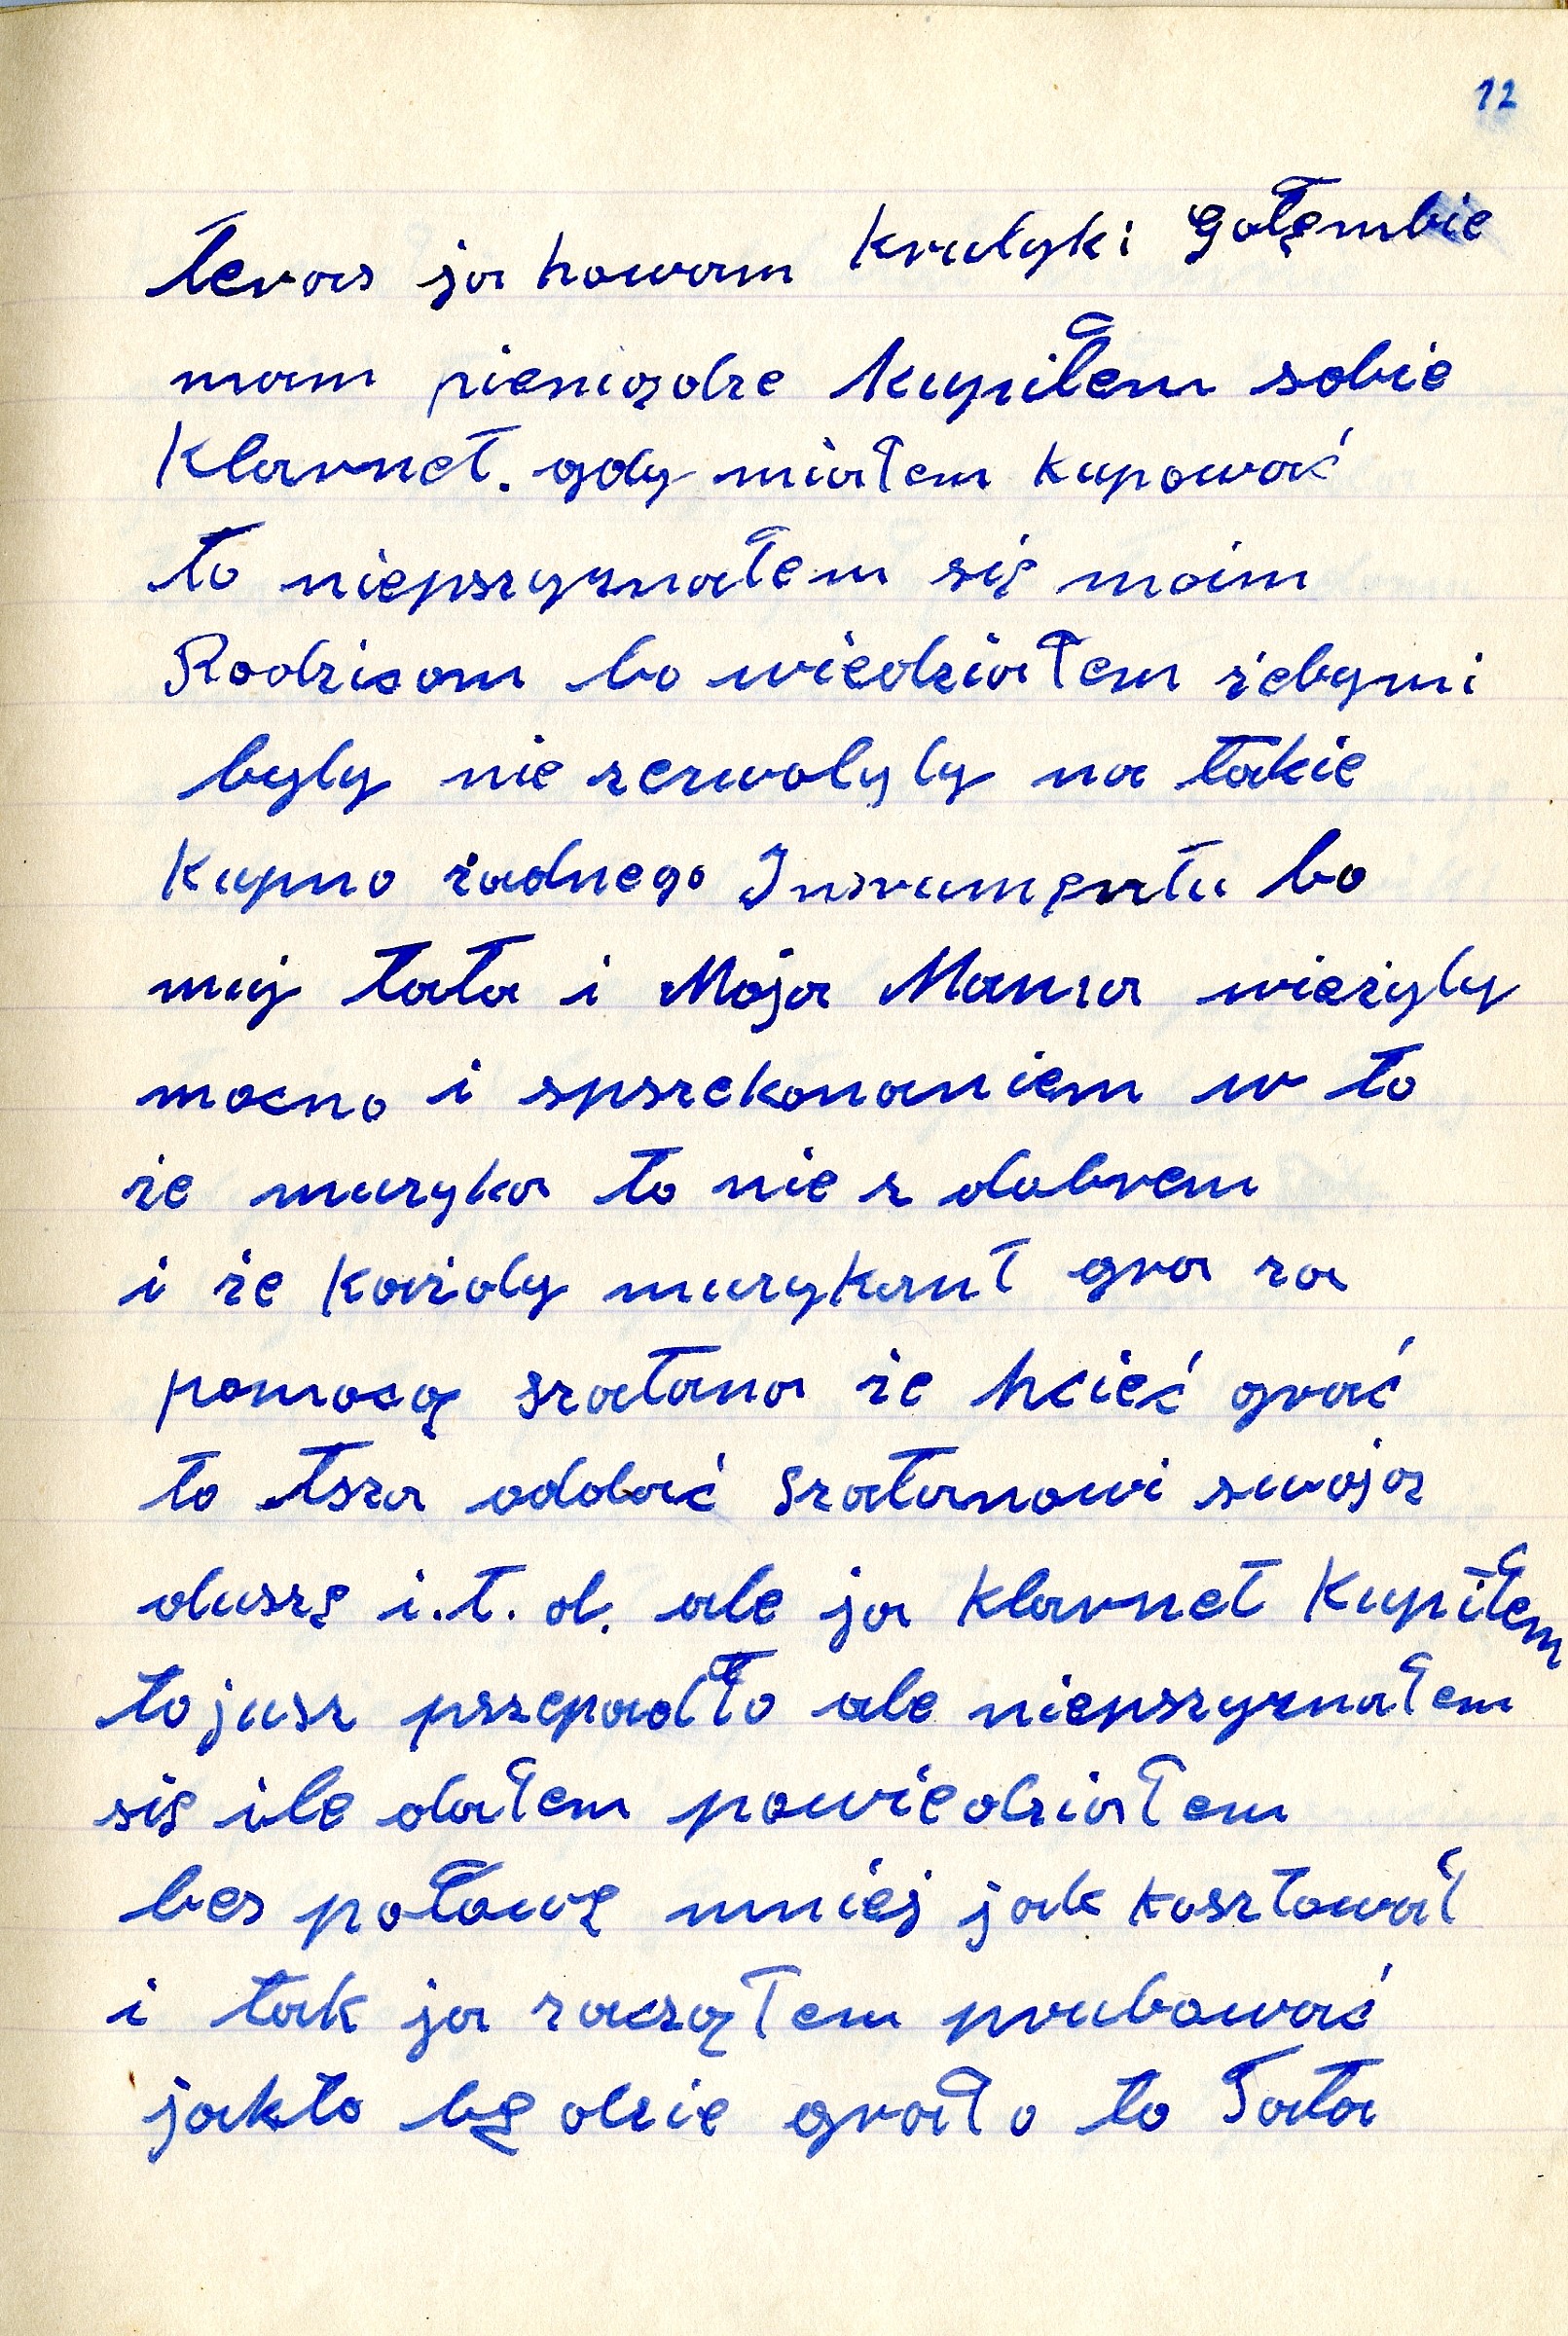 12
teras ja howam krulyki Gołembie
mam pieniądze kupiłem sobie
Klarnet. gdy miałem kupować
to niepszyznałem się moim
Rodzicom bo wiedziałem żebymi
byly nie zezwolyly na takie
kupno żadnego Insrumęntu bo
muj tata i Moja Mama wieżyly
mocno i spszekonaniem w to
że muzyka to nie z dobrem
i że każdy muzykant gra za
pomocą szatana że hcieć grać
to tsza oddać szatanowi swoja
duszę i.t.d. ale ja klarnet kupiłem
to jusz pszepadło ale niepszyznałem
się ile dałem powiedziałem
bes połowę mniej jak kosztował
i tak ja zacząłem prubować
jakto bę dzie grało to Tata